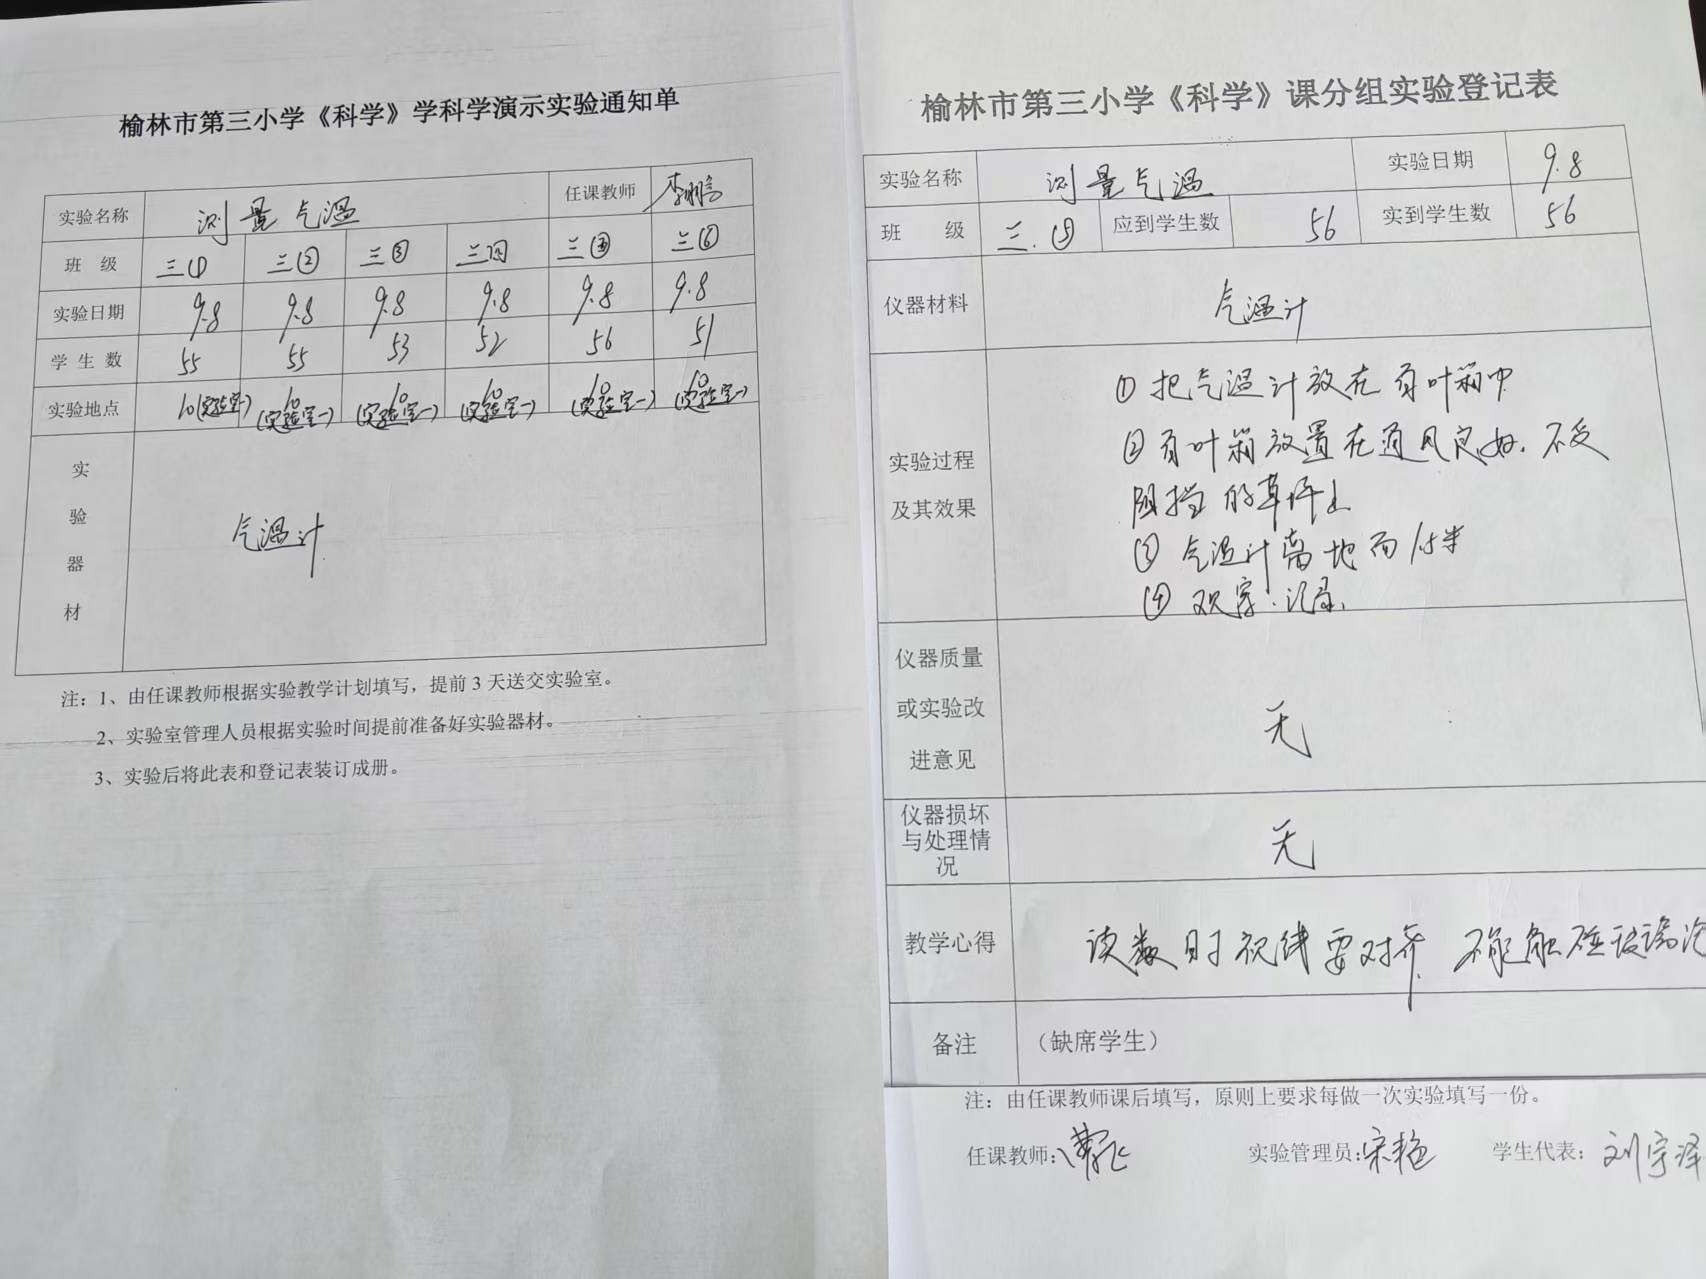 榆林市第三小学《科学》学科学演示实验通知单
实验名称 测量气温 任课教师
班 级 三① 三② 三③ 三④ 三 三⑥
实验日期 9.8 9.8 9.8 9.8 9.8 9.8
学 生 数 55 55 53 52 56 51
实验地点 10(实验室一) 10(实验室一) 10(实验室一) 10(实验室一) 10(实验室一) 10(实验室一)
实验器材 气温计
注：1、由任课教师根据实验教学计划填写，提前 3 天送交实验室。
2、实验室管理人员根据实验时间提前准备好实验器材。
3、实验后将此表和登记表装订成册。
榆林市第三小学《科学》课分组实验登记表
实验名称 测量气温 实验日期 9.8
班 级 三.⑤ 应到学生数 56 实到学生数 56
仪器材料 气温计
实验过程及其效果
①把气温计放在百叶箱中
②百叶箱放置在通风良好.不受
阻挡的草坪上
③气温计离地面1.5米
④观察.记录.
仪器质量或实验改进意见 无
仪器损坏与处理情况 无
教学心得 读数时视线要对齐 不能触碰玻璃泡
备注 （缺席学生）
注：由任课教师课后填写，原则上要求每做一次实验填写一份。
任课教师:曹飞 实验管理员:宋艳 学生代表：刘宇泽